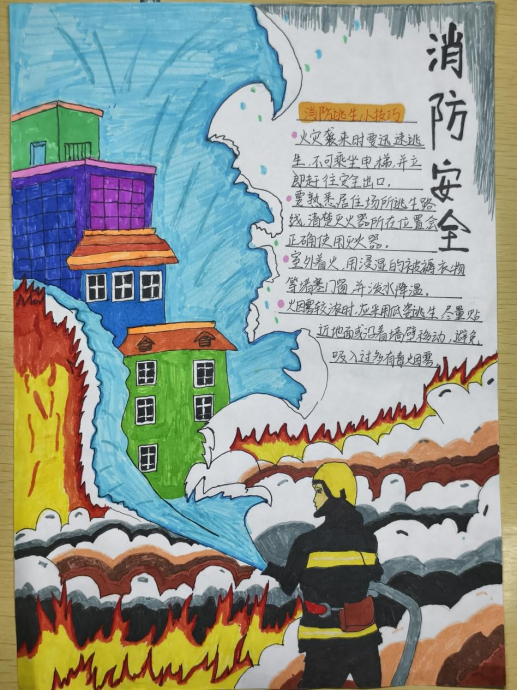 消防安全
消防逃生小技巧
火灾袭来时要迅速逃
生,不可乘坐电梯,并立
即赶往安全出口。
要熟悉居住场所逃生路
线,清楚灭火器所在位置会
正确使用灭火器。
室外着火,用浸湿的被褥衣物
等堵塞门窗,并泼水降温。
烟雾较浓时,应采用爪姿逃生,尽量贴
近地面或沿着墙壁移动,避免
吸入过多有毒烟雾。